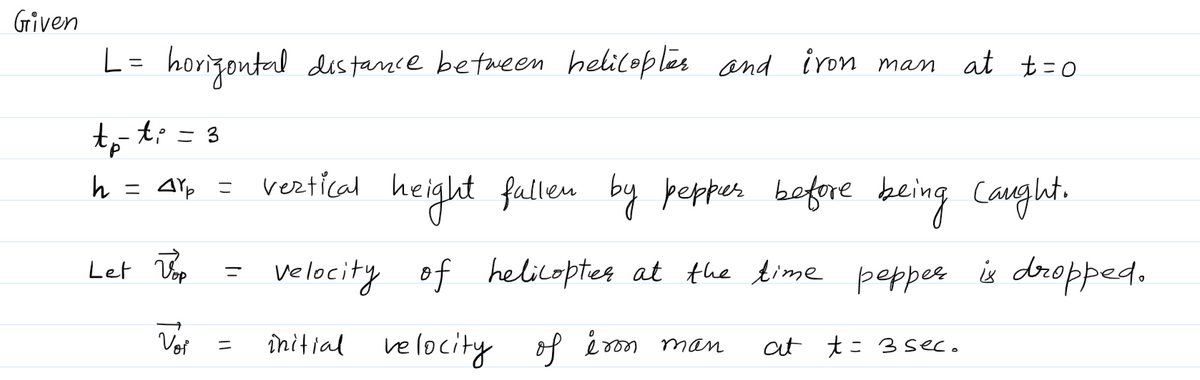 Given
L = horizontal distance between helicopter and iron man at t=0
tₚ - tᵢ = 3
h = Δyₚ = vertical height fallen by pepper before being caught.
Let V⃗ₒₚ = velocity of helicopter at the time pepper is dropped.
V⃗ₒᵢ = initial velocity of iron man at t = 3 sec.